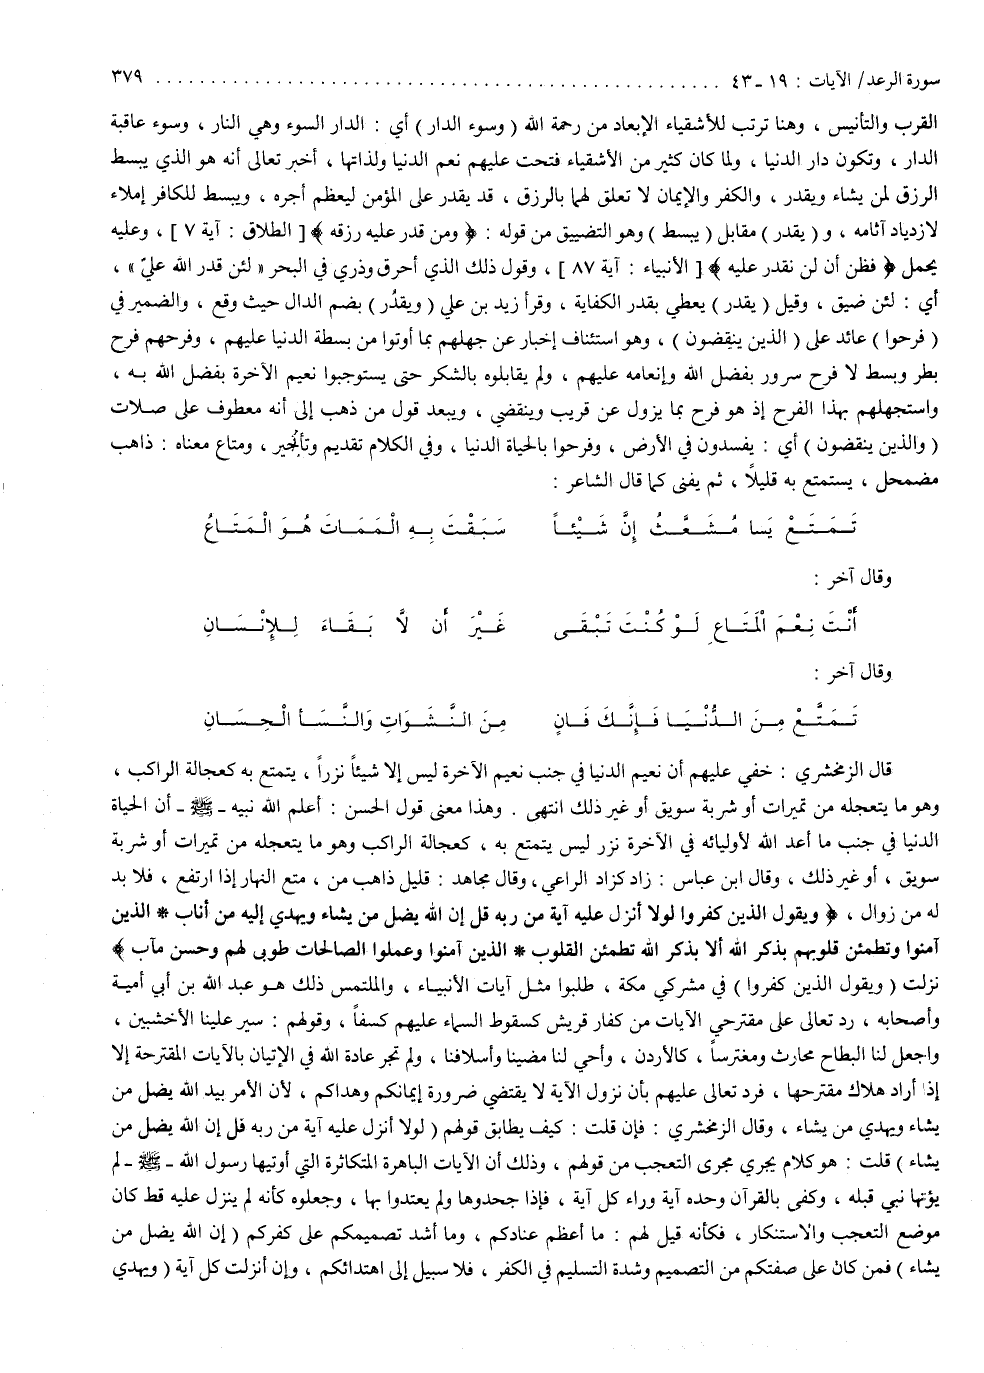 سورة الرعد/ الآيات : ١٩ ـ ٤٣ ................................................ ٣٧٩
القرب والتأنيس ، وهنا ترتب للأشقياء الإبعاد من رحمة الله ( وسوء الدار ) أي : الدار السوء وهي النار ، وسوء عاقبة
الدار ، وتكون دار الدنيا ، ولما كان كثير من الأشقياء فتحت عليهم نعم الدنيا ولذاتها ، أخبر تعالى أنه هو الذي يبسط
الرزق لمن يشاء ويقدر ، والكفر والإيمان لا تعلق لهما بالرزق ، قد يقدر على المؤمن ليعظم أجره ، ويبسط للكافر إملاء
لازدياد آثامه ، و ( يقدر ) مقابل ( يبسط ) وهو التضييق من قوله : ﴿ ومن قدر عليه رزقه ﴾ [ الطلاق : آية ٧ ] ، وعليه
يحمل ﴿ فظن أن لن نقدر عليه ﴾ [ الأنبياء : آية ٨٧ ] ، وقول ذلك الذي أحرق وذري في البحر « لئن قدر الله عليّ » ،
أي : لئن ضيق ، وقيل ( يقدر ) يعطي بقدر الكفاية ، وقرأ زيد بن علي ( ويقدُر ) بضم الدال حيث وقع ، والضمير في
( فرحوا ) عائد على ( الذين ينقضون ) ، وهو استئناف إخبار عن جهلهم بما أوتوا من بسطة الدنيا عليهم ، وفرحهم فرح
بطر وبسط لا فرح سرور بفضل الله وإنعامه عليهم ، ولم يقابلوه بالشكر حتى يستوجبوا نعيم الآخرة بفضل الله به ،
واستجهلهم بهذا الفرح إذ هو فرح بما يزول عن قريب وينقضي ، ويبعد قول من ذهب إلى أنه معطوف على صلات
( والذين ينقضون ) أي : يفسدون في الأرض ، وفرحوا بالحياة الدنيا ، وفي الكلام تقديم وتأخير ، ومتاع معناه : ذاهب
مضمحل ، يستمتع به قليلاً ، ثم يفنى كما قال الشاعر :
تَمَتَّعْ يَا مُشَعَّثُ إِنَّ شَيْئاً    سَبَقْتَ بِهِ الْمَمَاتَ هُوَ الْمَتَاعُ
وقال آخر :
أَنْتَ نِعْمَ الْمَتَاعِ لَوْ كُنْتَ تَبْقَى    غَيْرَ أَن لاَّ بَقَاءَ لِلإِنْسَانِ
وقال آخر :
تَمَتَّعْ مِنَ الدُّنْيَا فَإِنَّكَ فَانٍ    مِنَ النَّشَوَاتِ وَالنَّسَأ الْحِسَانِ
قال الزمخشري : خفي عليهم أن نعيم الدنيا في جنب نعيم الآخرة ليس إلا شيئاً نزراً ، يتمتع به كعجالة الراكب ،
وهو ما يتعجله من تميرات أو شربة سويق أو غير ذلك انتهى . وهذا معنى قول الحسن : أعلم الله نبيه ـ ﷺ ـ أن الحياة
الدنيا في جنب ما أعد الله لأوليائه في الآخرة نزر ليس يتمتع به ، كعجالة الراكب وهو ما يتعجله من تميرات أو شربة
سويق ، أو غير ذلك ، وقال ابن عباس : زاد كزاد الراعي ، وقال مجاهد : قليل ذاهب من ، متع النهار إذا ارتفع ، فلا بد
له من زوال ، ﴿ ويقول الذين كفروا لولا أنزل عليه آية من ربه قل إن الله يضل من يشاء ويهدي إليه من أناب * الذين
آمنوا وتطمئن قلوبهم بذكر الله ألا بذكر الله تطمئن القلوب * الذين آمنوا وعملوا الصالحات طوبى لهم وحسن مآب ﴾
نزلت ( ويقول الذين كفروا ) في مشركي مكة ، طلبوا مثل آيات الأنبياء ، والملتمس ذلك هو عبد الله بن أبي أمية
وأصحابه ، رد تعالى على مقترحي الآيات من كفار قريش كسقوط السماء عليهم كسفاً ، وقولهم : سير علينا الأخشبين ،
واجعل لنا البطاح محارث ومغترساً ، كالأردن ، وأحي لنا مضينا وأسلافنا ، ولم تجر عادة الله في الإتيان بالآيات المقترحة إلا
إذا أراد هلاك مقترحها ، فرد تعالى عليهم بأن نزول الآية لا يقتضي ضرورة إيمانكم وهداكم ، لأن الأمر بيد الله يضل من
يشاء ويهدي من يشاء ، وقال الزمخشري : فإن قلت : كيف يطابق قولهم ( لولا أنزل عليه آية من ربه قل إن الله يضل من
يشاء ) قلت : هو كلام يجري مجرى التعجب من قولهم ، وذلك أن الآيات الباهرة المتكاثرة التي أوتيها رسول الله ـ ﷺ ـ لم
يؤتها نبي قبله ، وكفى بالقرآن وحده آية وراء كل آية ، فإذا جحدوها ولم يعتدوا بها ، وجعلوه كأنه لم ينزل عليه قط كان
موضع التعجب والاستنكار ، فكأنه قيل لهم : ما أعظم عنادكم ، وما أشد تصميمكم على كفركم ( إن الله يضل من
يشاء ) فمن كان على صفتكم من التصميم وشدة التسليم في الكفر ، فلا سبيل إلى اهتدائكم ، وإن أنزلت كل آية ( ويهدي